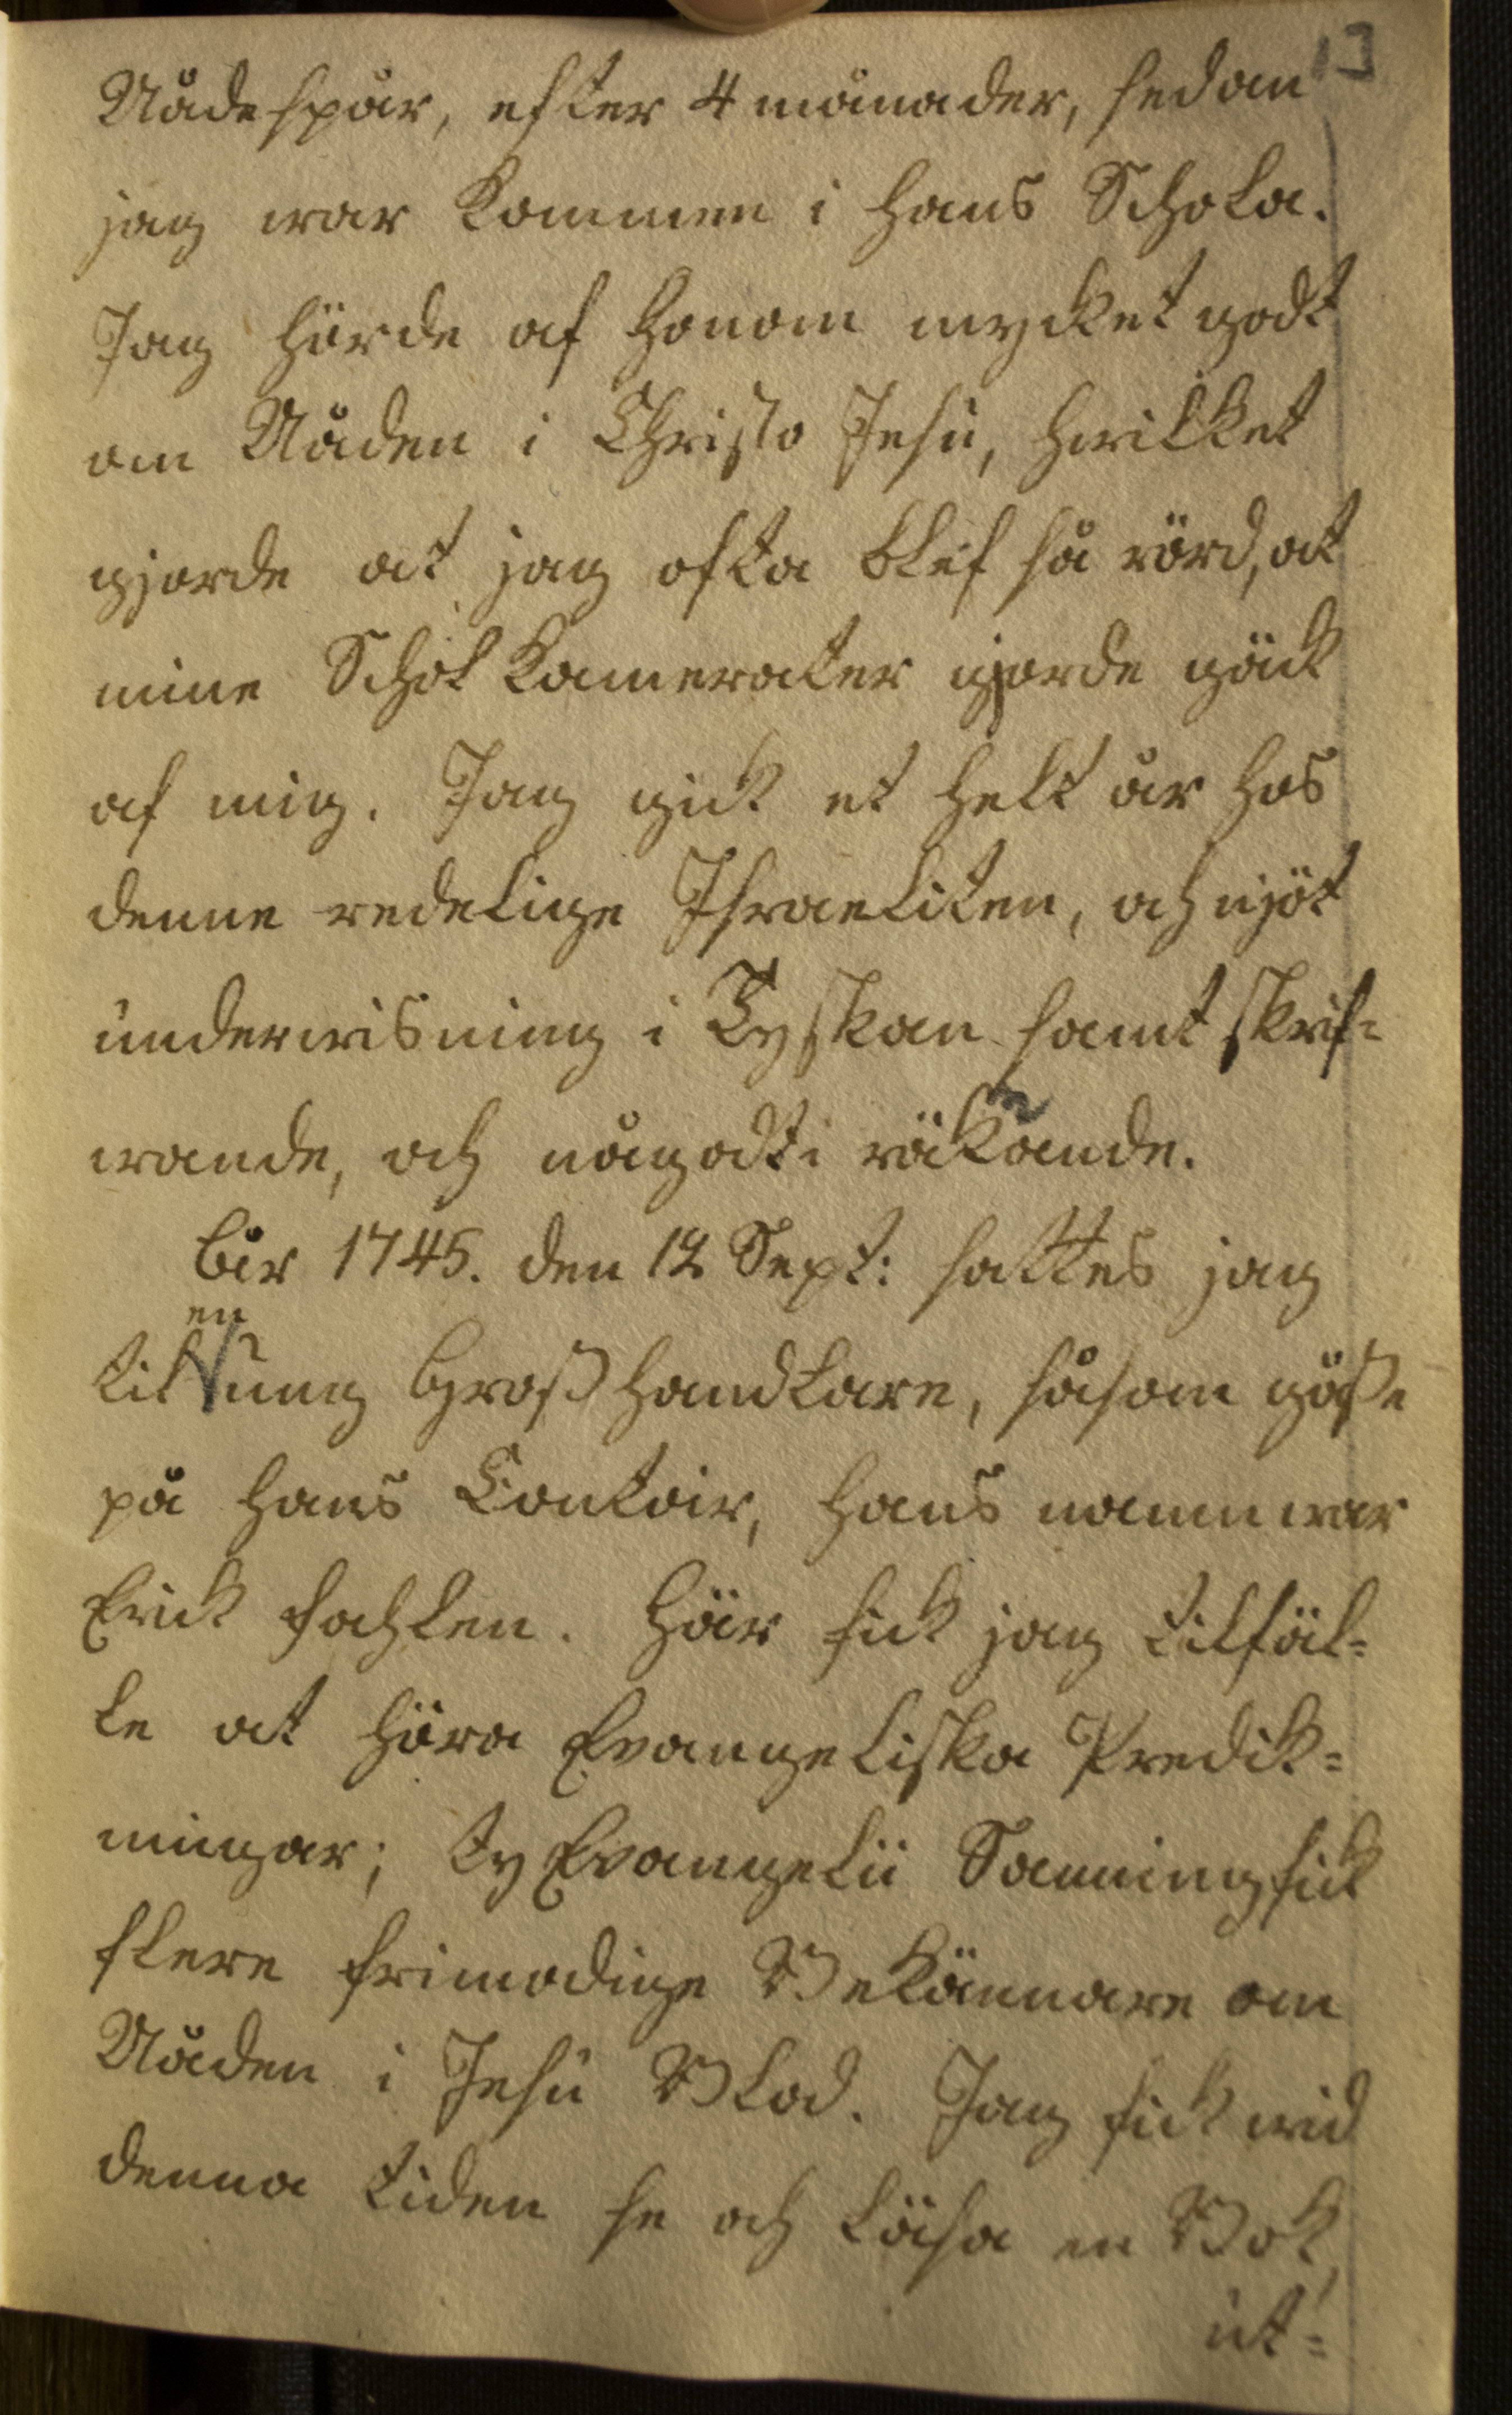 13
Nådespår, efter 4 månader, sedan
jag war kommen i hans Schola.
Jag hörde af honom mycket godt
om Nåden i Christo Jesu, hwilket
gjorde at jag ofta blef så rörd, at
mine Schol kamerater gjorde gäck
af mig. Jag gick et helt år hos
denne redelige Israeliten, och njöt
underwisning i Tyskan samt skrif-
wande, och någodt i räknande.
År 1745. den 12 Sept: sattes jag
til en ung Grosshandlare, såsom gåsse
på hans Contoir, hans namn war
Erick Fahlen. Här fick jag tilfäl-
le at höra Evangeliska Predik-
ningar; ty Evangelii Sanning fick
flere frimodige Bekännare om
Nåden i Jesu Blod. Jag fick wid
denna tiden se och läsa en Bok,
ut-